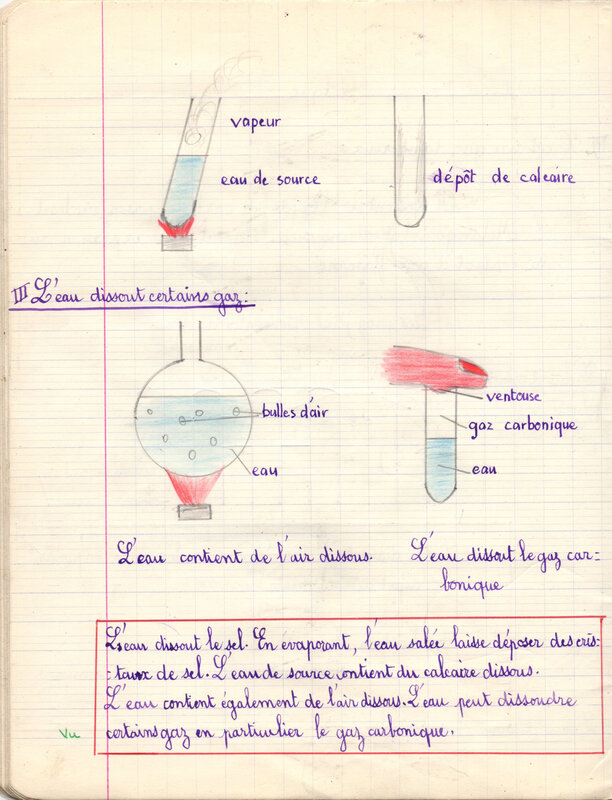 vapeur
eau de source
dépôt de calcaire
III L'eau dissout certains gaz:
bulles d'air
eau
ventouse
gaz carbonique
eau
L'eau contient de l'air dissous.
L'eau dissout le gaz car=
bonique
L'eau dissout le sel. En évaporant, l'eau salée laisse déposer des cris-
-taux de sel. L'eau de source contient du calcaire dissous.
L'eau contient également de l'air dissous. L'eau peut dissoudre
certains gaz en particulier le gaz carbonique.
Vu